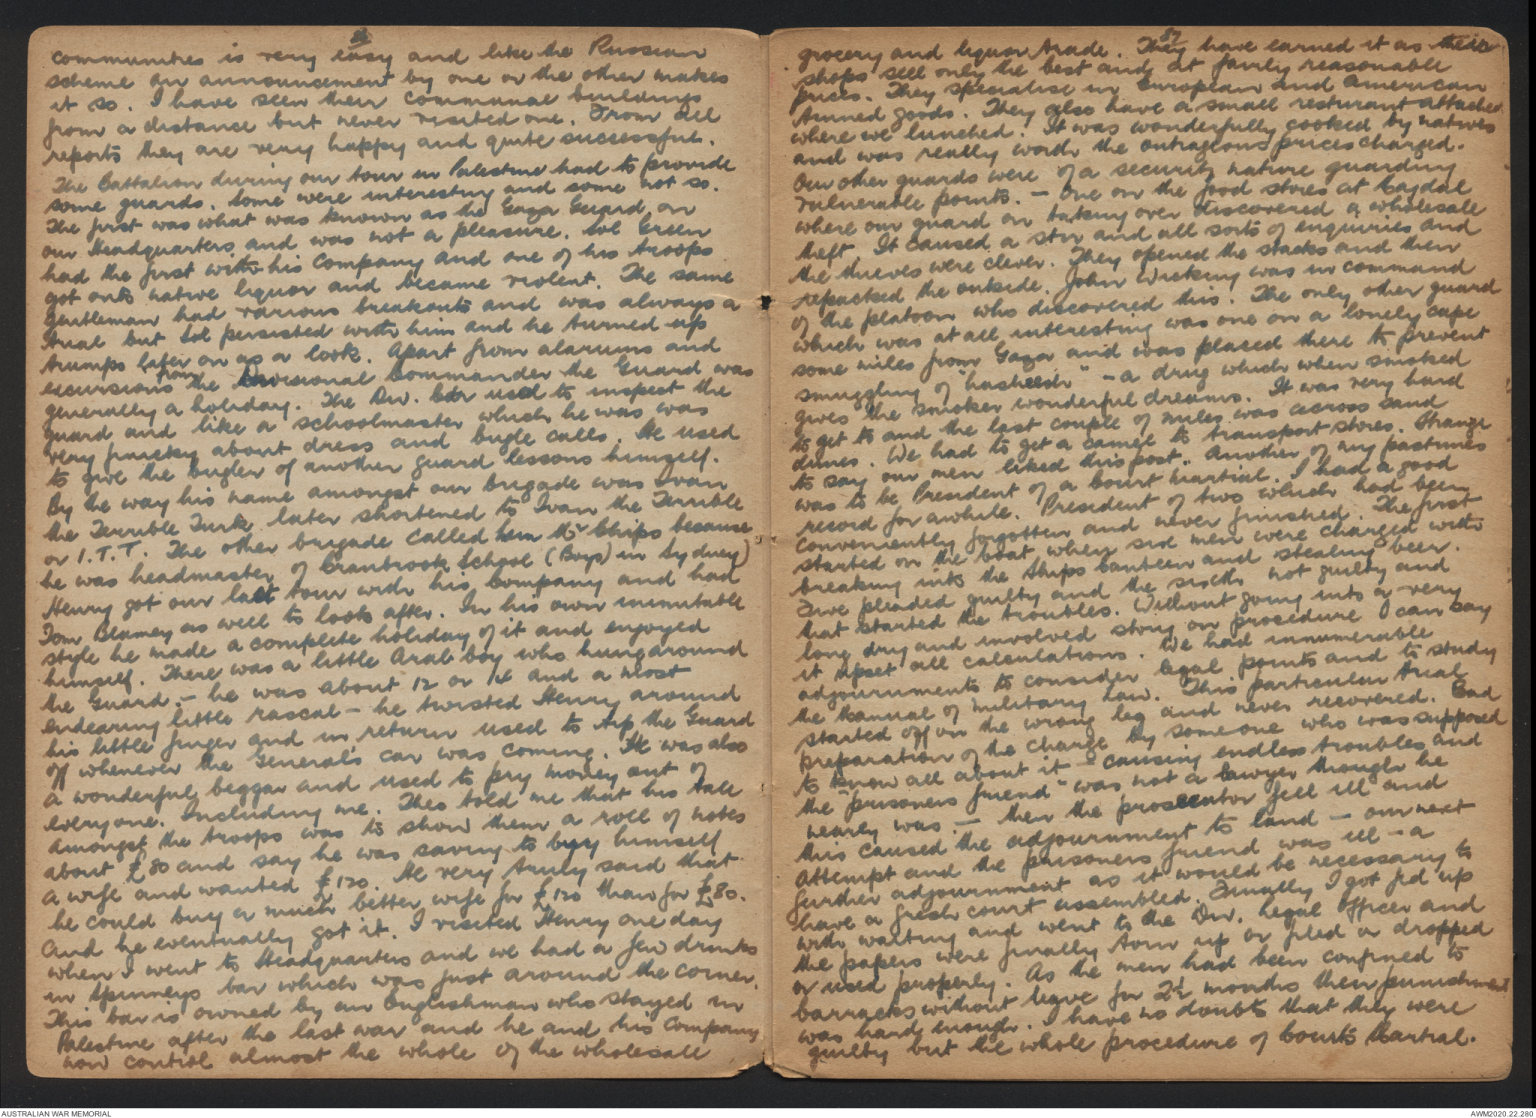 communities is very easy and like the Russian
scheme an announcement by one or the other makes
it so. I have seen their communal buildings
from a distance but never visited one. From all
reports they are very happy and quite successful.
The Battalion during our tour in Palestine had to provide
some guards. Some were interesting and some not so.
The first was what was known as the Gaza Guard on
our Headquarters and was not a pleasure. Sol Green
had the first with his Company and one of his troops
got onto native liquor and became violent. The same
gentleman had various breakouts and was always a
trial but Sol persisted with him and he turned up
trumps later on as a cook. Apart from alarums and
excursions from the Divisional Commander the Guard was
generally a holiday. The Div. Cdr used to inspect the
guard and like a schoolmaster which he was was
very finicky about dress and bugle calls. He used
to give the bugler of another guard lessons himself.
By the way his name amongst our brigade was Ivan
the Terrible Turk later shortened to Ivan the Terrible
or I.T.T. The other brigade called him Mr Chips because
he was headmaster of Cranbrook School (Boys) in Sydney)
Henry got our last tour with his Company and had
Tom Blamey as well to look after. In his own inimitable
style he made a complete holiday of it and enjoyed
himself. There was a little Arab boy who hung around
the Guard. - he was about 12 or 14 and a most
endearing little rascal - he twisted Henry around
his little finger and in return used to tip the Guard
off whenever the General's car was coming. He was also
a wonderful beggar and used to pry money out of
everyone. Including me. Theo told me that his tale
amongst the troops was to show them a roll of notes
about £80 and say he was saving to buy himself
a wife and wanted £120. He very truly said that
he could buy a much better wife for £120 than for £80.
And he eventually got it. I visited Henry one day
when I went to Headquarters and we had a few drinks
in Spinneys bar which was just around the corner.
This bar is owned by an Englishman who stayed in
Palestine after the last war and he and his Company
now control almost the whole of the wholesale
57
grocery and liquor trade. They have earned it as their
shops sell only the best and at fairly reasonable
prices. They specialise in European and American
tinned goods. They also have a small resturant attached
where we lunched. It was wonderfully cooked by natives
and was really worth the outrageous prices charged.
Our other guards were of a security nature guarding
vulnerable points. - One on the food stores at Magdal
where our guard on taking over discovered a wholesale
theft. It caused a stir and all sorts of enquiries and
the thieves were clever. They opened the stacks and then
repacked the outside. John Wicking was in command
of the platoon who discovered this. The only other guard
which was at all interesting was one on a lonely cape
some miles from Gaza and was placed there to prevent
smuggling of "hasheesh" - a drug which when smoked
gives the smoker wonderful dreams. It was very hard
to get to and the last couple of miles was across sand
dunes. We had to get a camel to transport stores. Strange
to say our men liked this post. Another of my pastimes
was to be President of a Court Martial. I had a good
record for awhile. President of two which had been
conveniently forgotten and never finished. The first
started on the boat when six men were charged with
breaking into the ships canteen and stealing beer.
Five pleaded guilty and the sixth not guilty and
that started the troubles. Without going into a very
long dry and involved story on procedure I can say
it upset all calculations. We had innumerable
adjournments to consider legal points and to study
the Manual of Military Law. This particular trial
started off on the wrong leg and never recovered. Bad
preparation of the charge by someone who was supposed
to know all about it causing endless troubles and
the "prisoners friend" was not a lawyer though he
nearly was. - then the prosecutor fell ill and
this caused the adjournment to land - our next
attempt and the prisoners friend was ill - a
further adjournment as it would be necessary to
have a fresh court assembled. Finally I got fed up
with waiting and went to the Div. Legal Officer and
the papers were finally torn up or filed or dropped
or used properly. As the men had been confined to
barracks without leave for 2½ months their punishment
was hard enough. I have no doubts that they were
guilty but the whole procedure of Courts Martial.
AUSTRALIAN WAR MEMORIAL
AWM2020.22.280